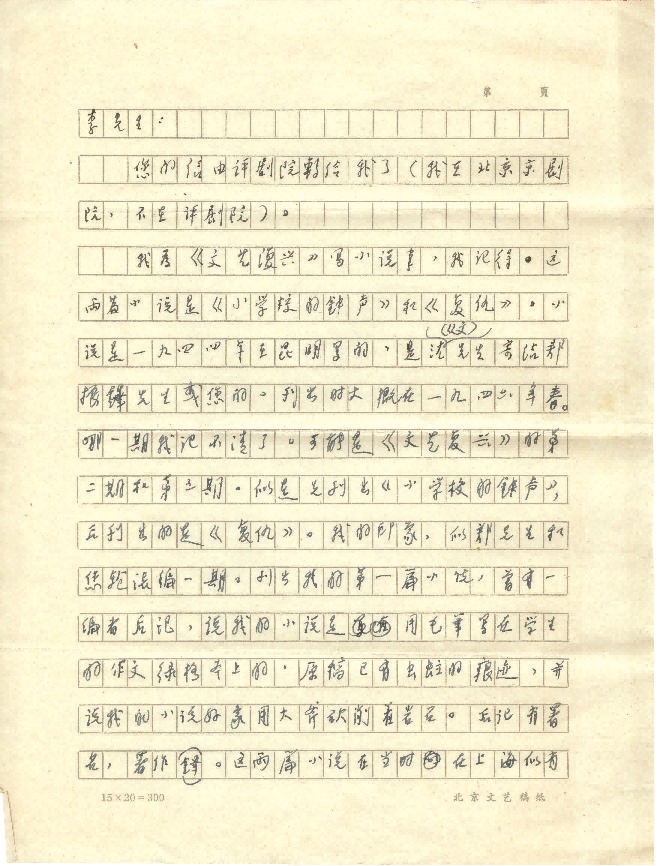 第 頁
李先生：
您的信由评剧院转给我了（我在北京京剧
院，不在评剧院）。
我为《文艺復兴》写小说事，我记得。这
两篇小说是《小学校的鈡声》和《复仇》。小
说是一九四四年在昆明写的，是沈(从文)先生寄给郑
振鐸先生或您的。刊出时大概在一九四六年春。
哪一期我记不清了。可能是《文艺复兴》的第
二期和第三期。似是先刊出《小学校的鈡声》，
后刊出的是《复仇》。我的印象，似郑先生和
您轮流编一期。刊出我的第一篇小说，曾有一
编者后记，说我的小说是用毛笔写在学生
的作文绿格本上的，原稿已有虫蛀的痕迹，并
说我的小说好象用大斧砍削着岩石。后记有署
名，署作鐸。这两篇小说在当时在上海似有
15×20=300
北京文艺稿纸